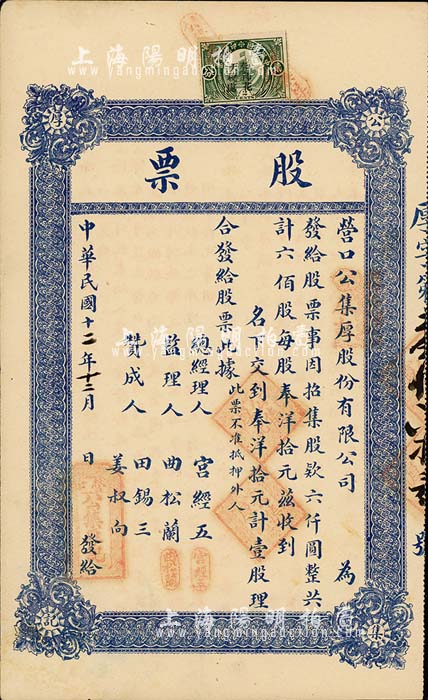 上海陽明拍賣
www.yangmingauction.com
公
厚
股票
營口公集厚股份有限公司 為
發給股票事因招集股欵六仟圓整共
計六佰股每股奉洋拾元茲收到
名下交到奉洋拾元計壹股理
合發給股票此據 此票不准抵押外人
總經理人 宮經五
監理人 曲松蘭
贊成人 田錫三
姜叔向
中華民國十二年十二月 日 發給
集
記
號
上海陽明拍賣
www.yangmingauction.com